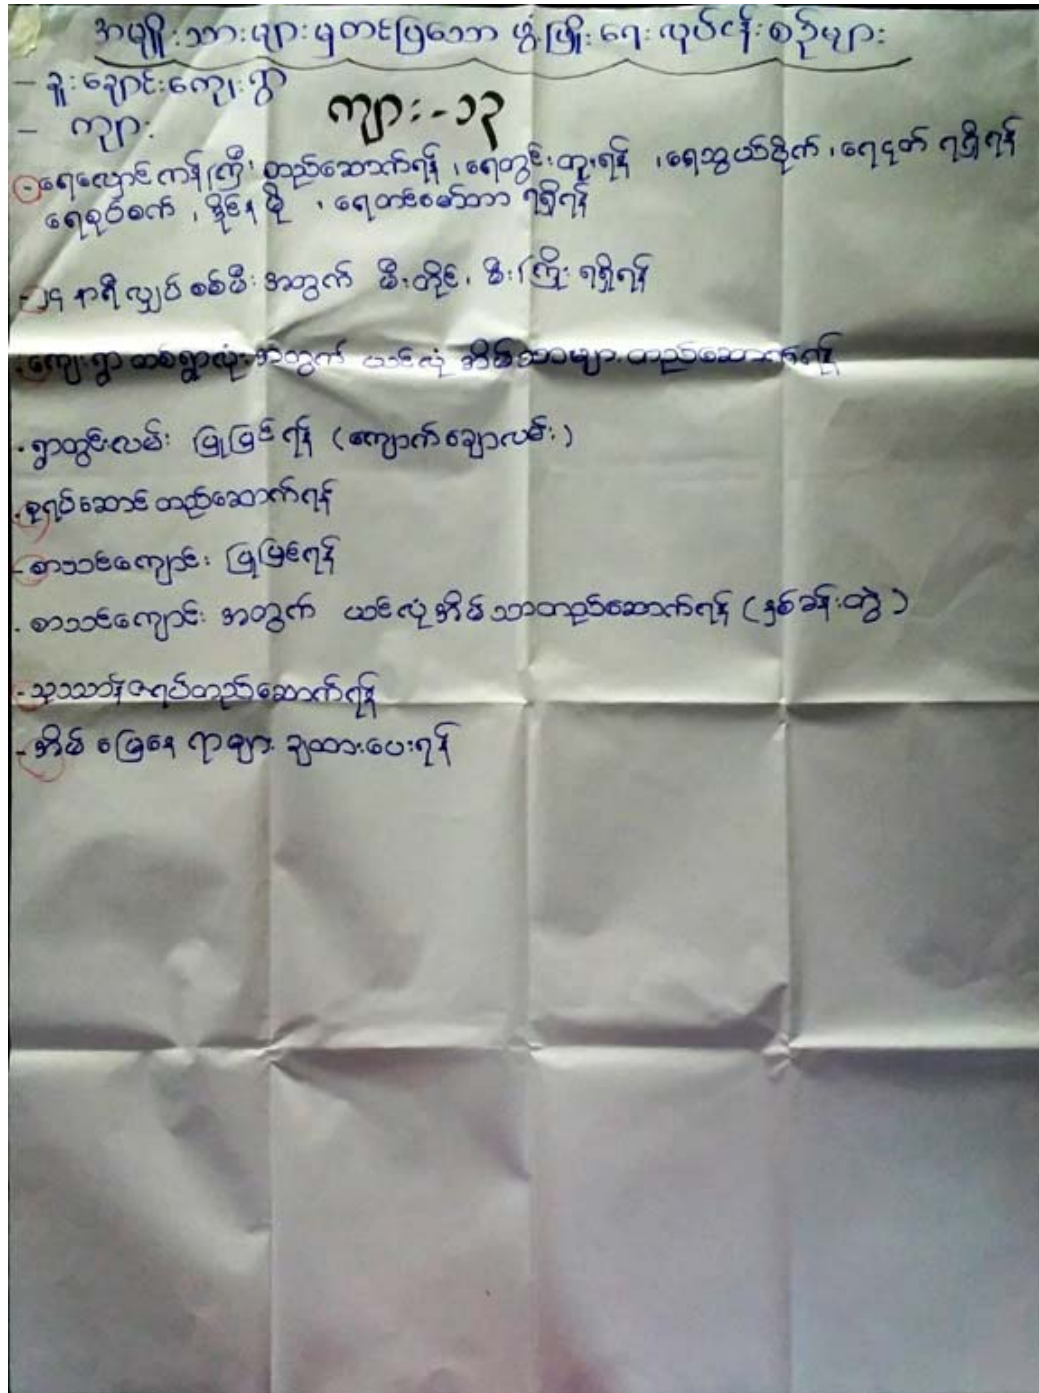 အမျိုးသားများမှတင်ပြသော ဖွံ့ဖြိုးရေးလုပ်ငန်းစဉ်များ
- ခူးချောင်းကျေးရွာ
- ကျား ကျား-၁၃
- ရေလှောင်ကန်ကြီး တည်ဆောက်ရန်၊ ရေတွင်းတူးရန်၊ ရေသွယ်ပိုက်၊ ရေဂုတ် ရရှိရန်
ရေစုပ်စက်၊ ဒိုင်နမို၊ ရေတင်မော်တာ ရရှိရန်
- ၂၄ နာရီလျှပ်စစ်မီးအတွက် မီးတိုင်၊ မီးကြိုး ရရှိရန်
- ကျေးရွာတစ်ရွာလုံးအတွက် ယင်လုံအိမ်သာများတည်ဆောက်ရန်
- ရွာတွင်းလမ်း ပြုပြင်ရန် (ကျောက်ချောလမ်း)
- စုရပ်ဆောင်တည်ဆောက်ရန်
- စာသင်ကျောင်း ပြုပြင်ရန်
- စာသင်ကျောင်း အတွက် ယင်လုံအိမ်သာတည်ဆောက်ရန် (နှစ်ခန်းတွဲ)
- သုသာန်ဇရပ်တည်ဆောက်ရန်
- အိမ်မြေနေရာများ ချထားပေးရန်